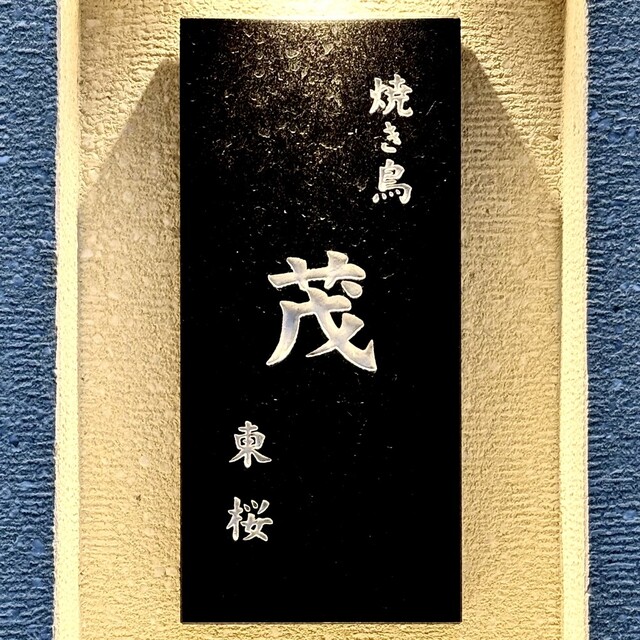 焼き鳥
茂
東桜